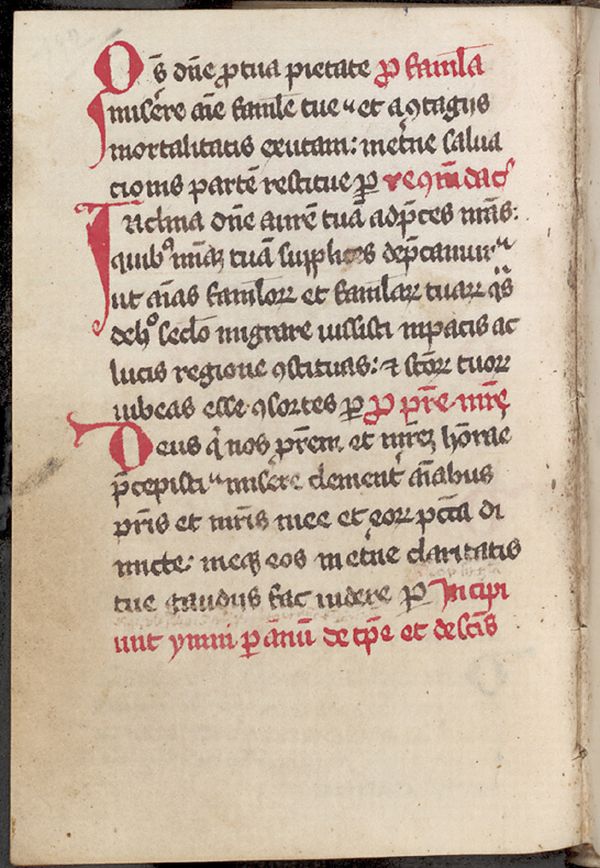 Qs̄ dn̄e ꝓ tua pietate ꝓ famla
miserere aīe famule tue et a ꝯtagijs
mortalitatis exutam: in et̄ne salua
tionis partē restitue ꝑ
Inclina dn̄e aurē tuā ad p̄ces nr̄as:
quibꝰ mīaꝫ tuā supplices dep̄camur
ut aīas famuloꝝ et famulaꝝ tuaꝝ qs̄
de hꝰ seclo migrare iussisti in pacis ac
lucis regione ꝯstituas: ⁊ scōꝝ tuoꝝ
iubeas esse ꝯsortes ꝑ ꝓ pr̄e mr̄e
Deus qi nos pr̄em et mr̄eꝫ honorae
p̄cepisti miserere clement̓ aīabus
pr̄is et mr̄is mee et eoꝝ pctā di
micte: meqꝫ eos in et̄ne claritatis
tue gaudijs fac uidere ꝑ Incipi
unt ymni ꝑ anū de tp̄e et de scīs